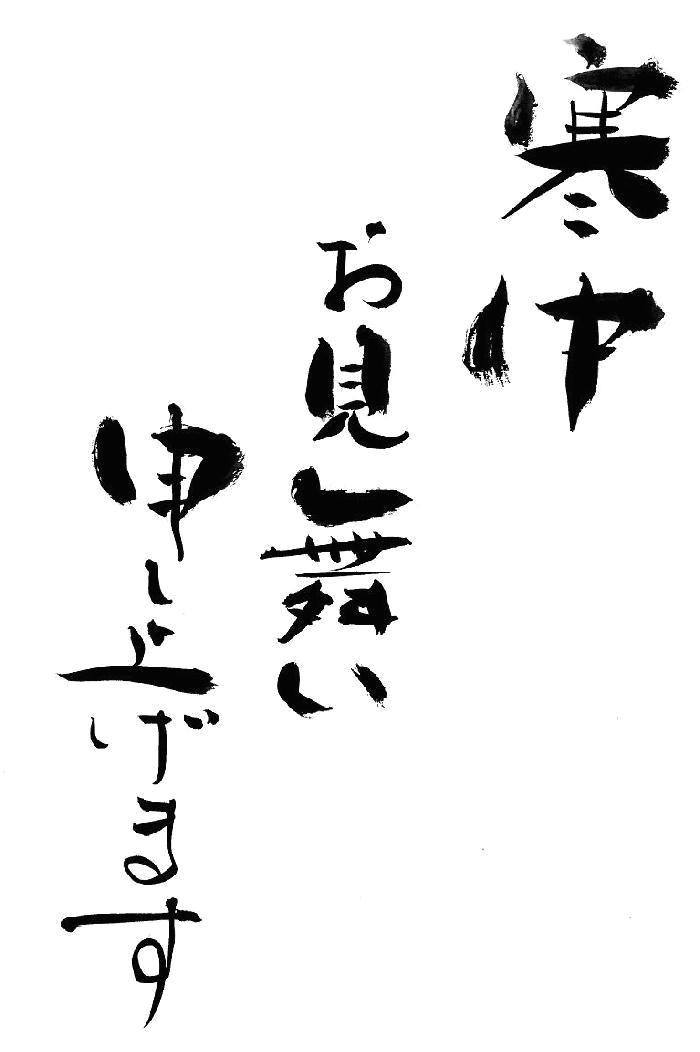 寒中
お見舞い
申し上げます